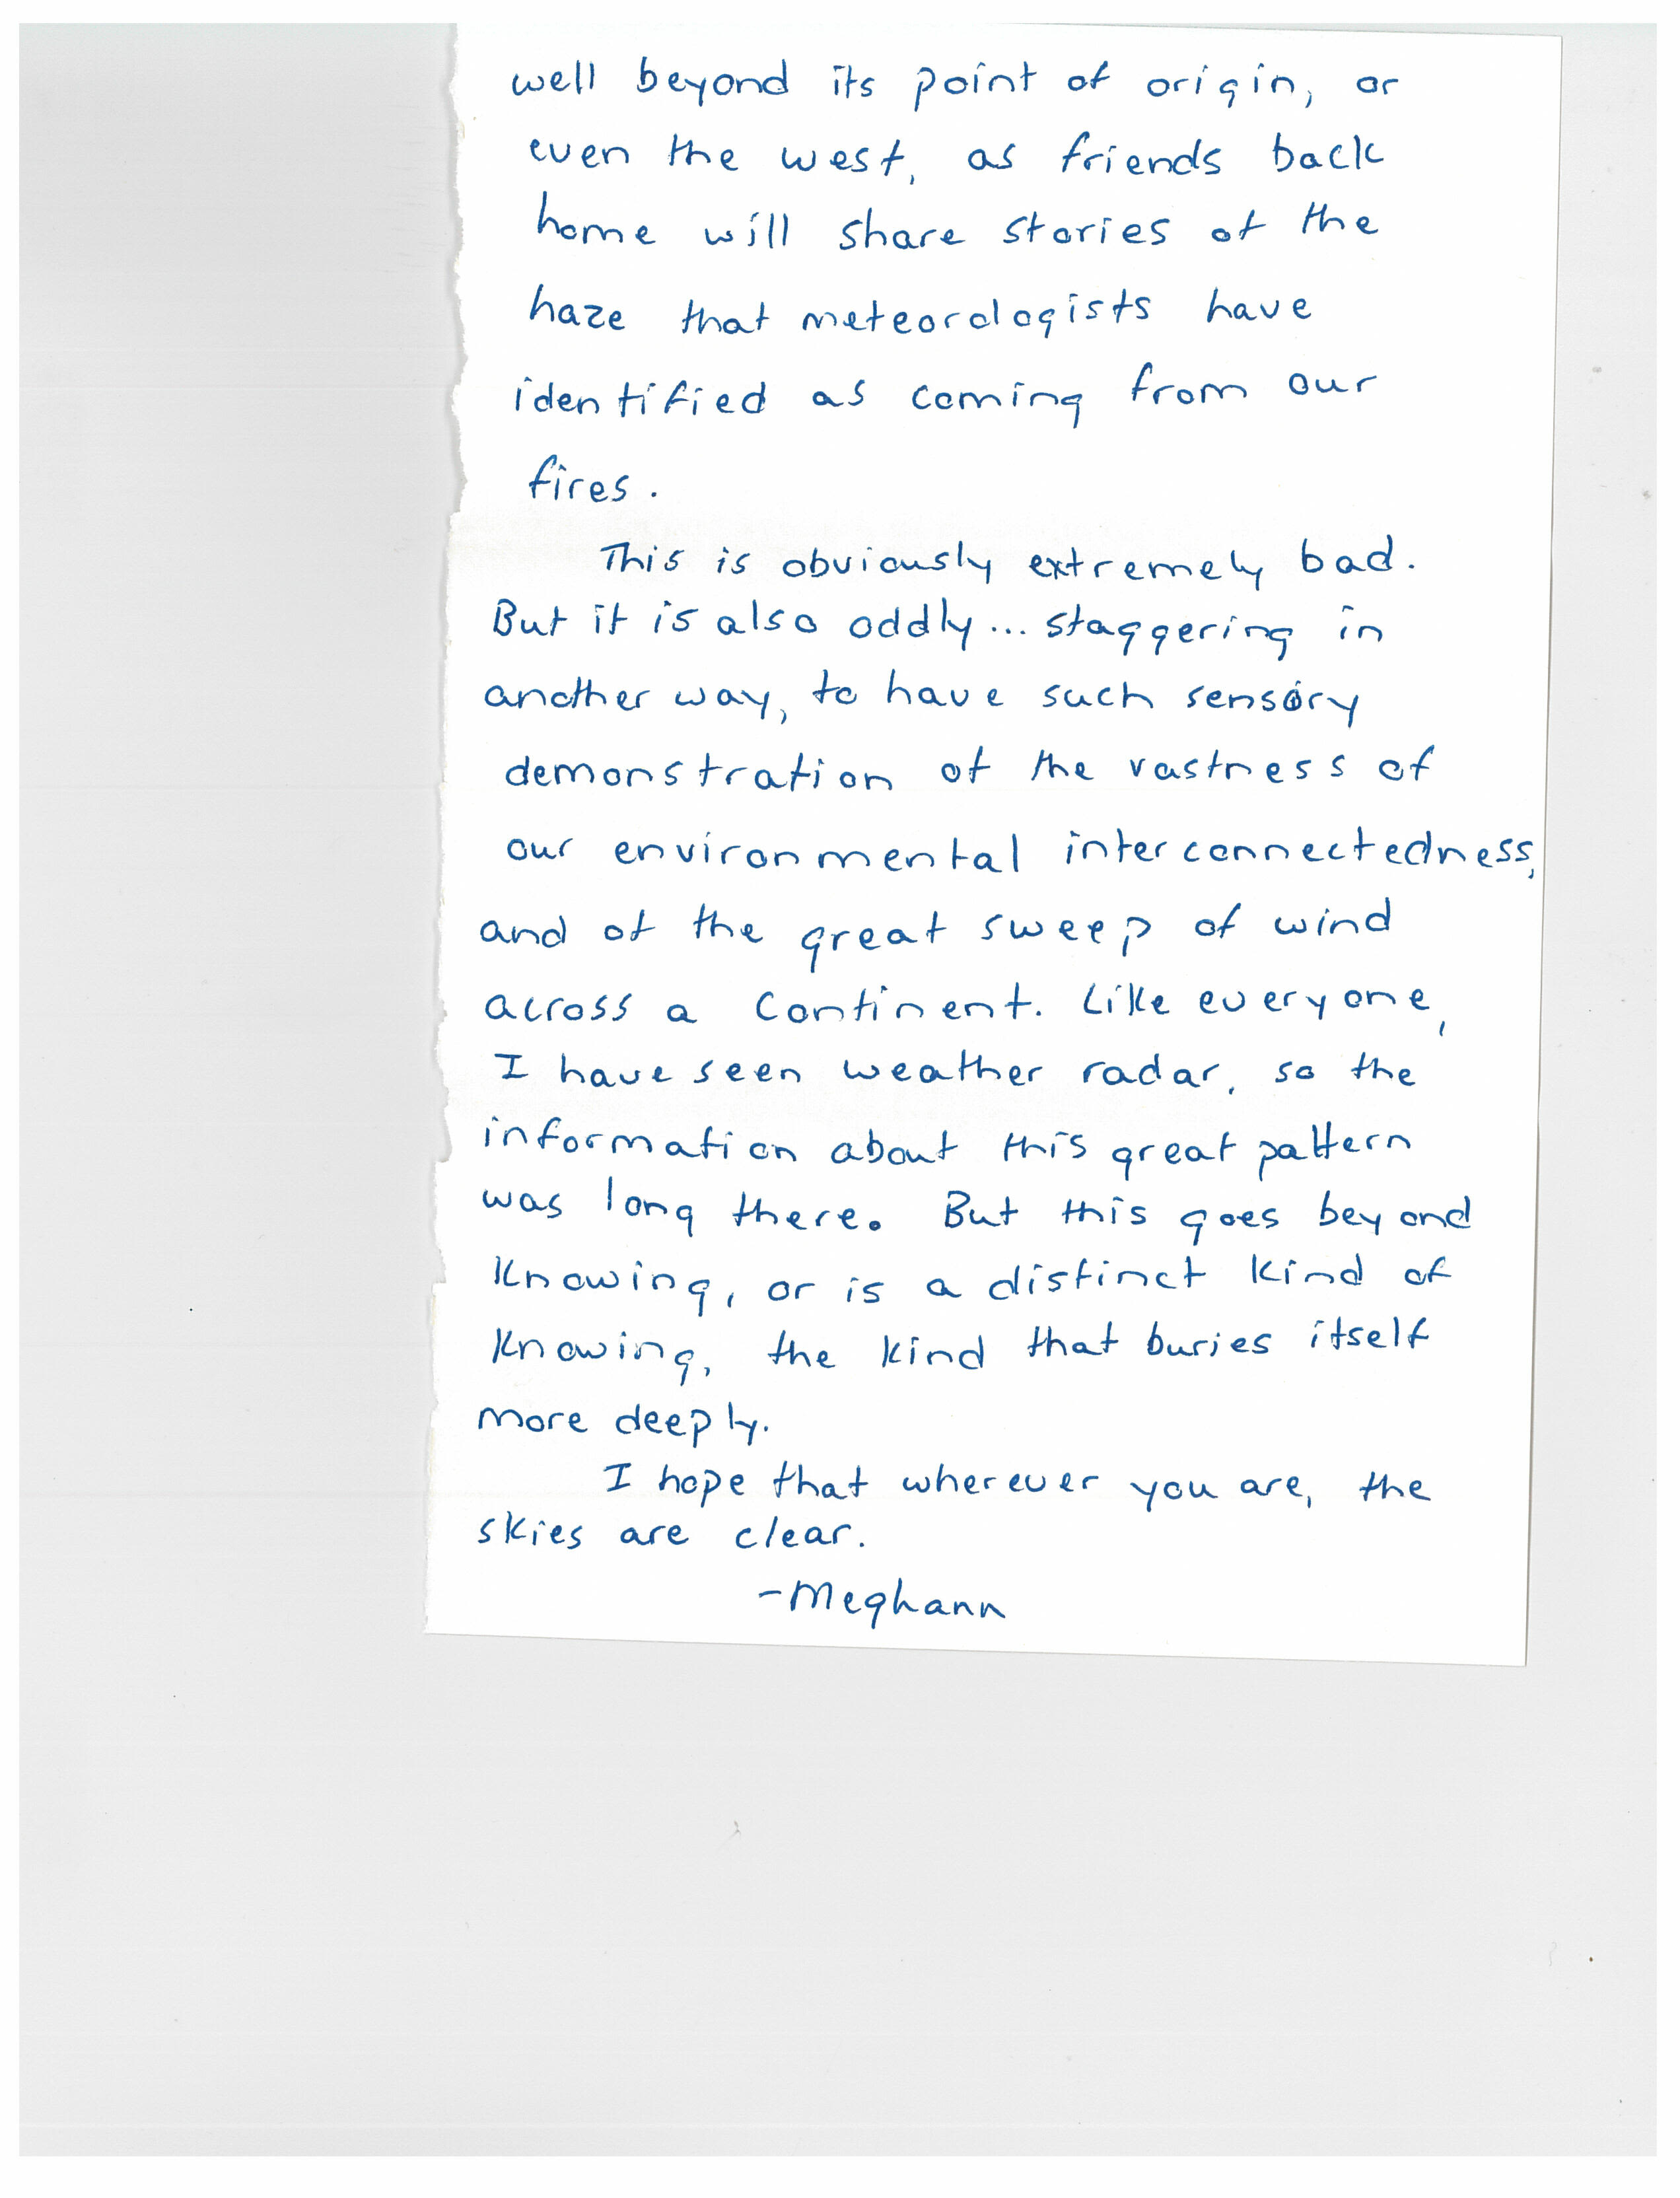 well beyond its point of origin, or
even the west, as friends back
home will share stories of the
haze that meteorologists have
identified as coming from our
fires.
This is obviously extremely bad.
But it is also oddly... staggering in
another way, to have such sensory
demonstration of the vastness of
our environmental interconnectedness,
and of the great sweep of wind
across a continent. Like everyone,
I have seen weather radar, so the
information about this great pattern
was long there. But this goes beyond
knowing, or is a distinct kind of
knowing, the kind that buries itself
more deeply.
I hope that wherever you are, the
skies are clear.
-Meghann